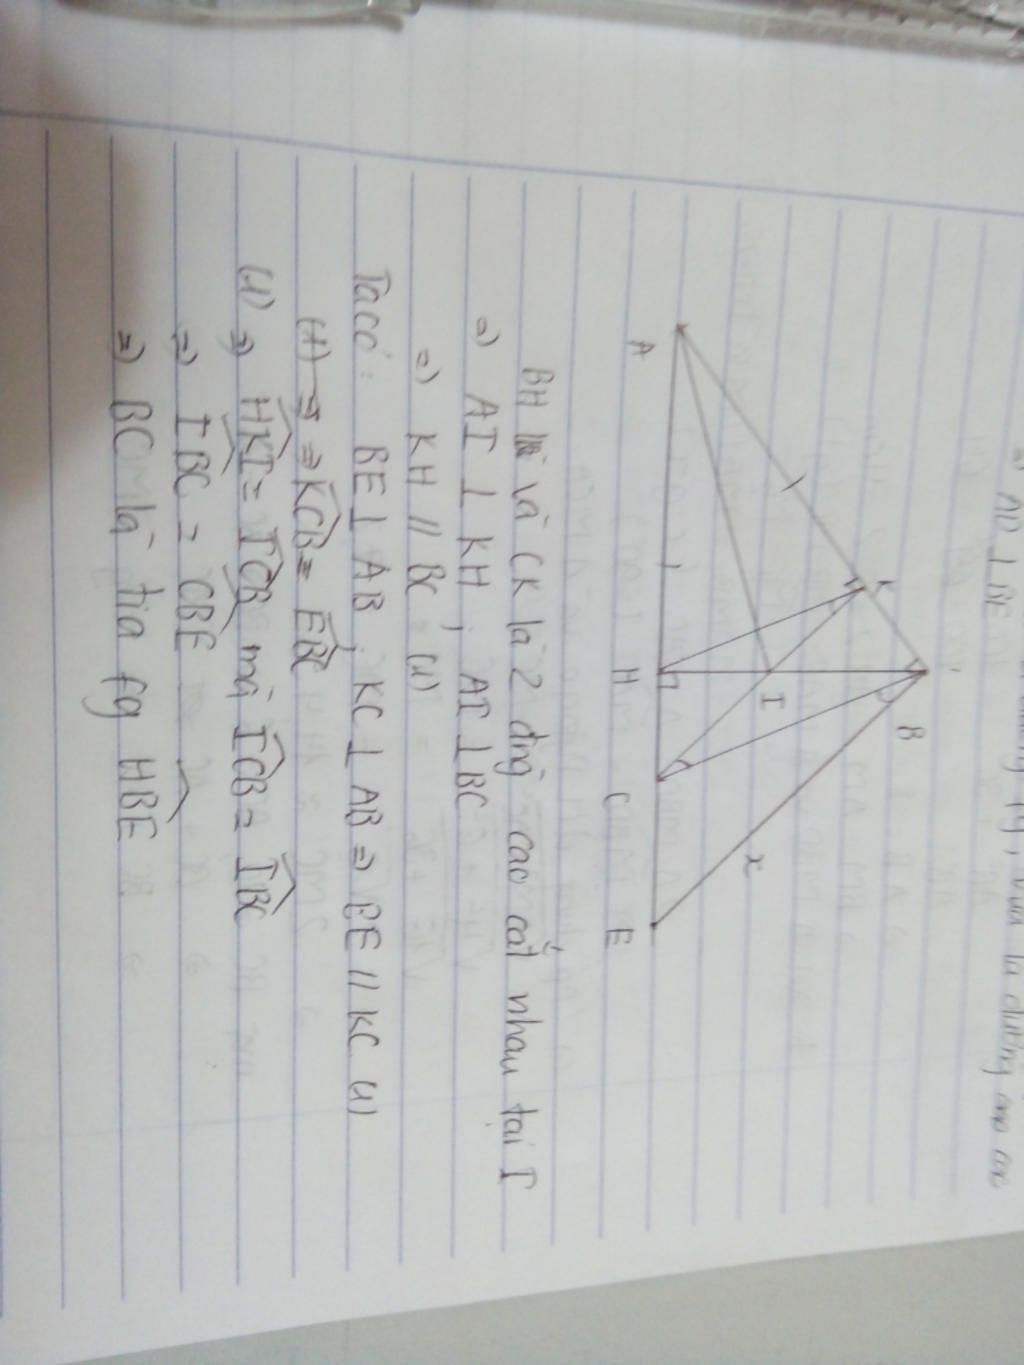 ⇒ AD ⊥ BE
A
K
B
I
H
C
x
E
BH và CK là 2 đng cao cắt nhau tại I
=) AI ⊥ KH, AI ⊥ BC
=) KH // BC (1)
Ta có: BE ⊥ AB, KC ⊥ AB ⇒ BE // KC (1)
(1) ⇒ ⇒ KCB = EBC
(1) ⇒ HKI = ICB mà ICB = IBC
=) IBC = CBE
=) BC là tia fg HBE